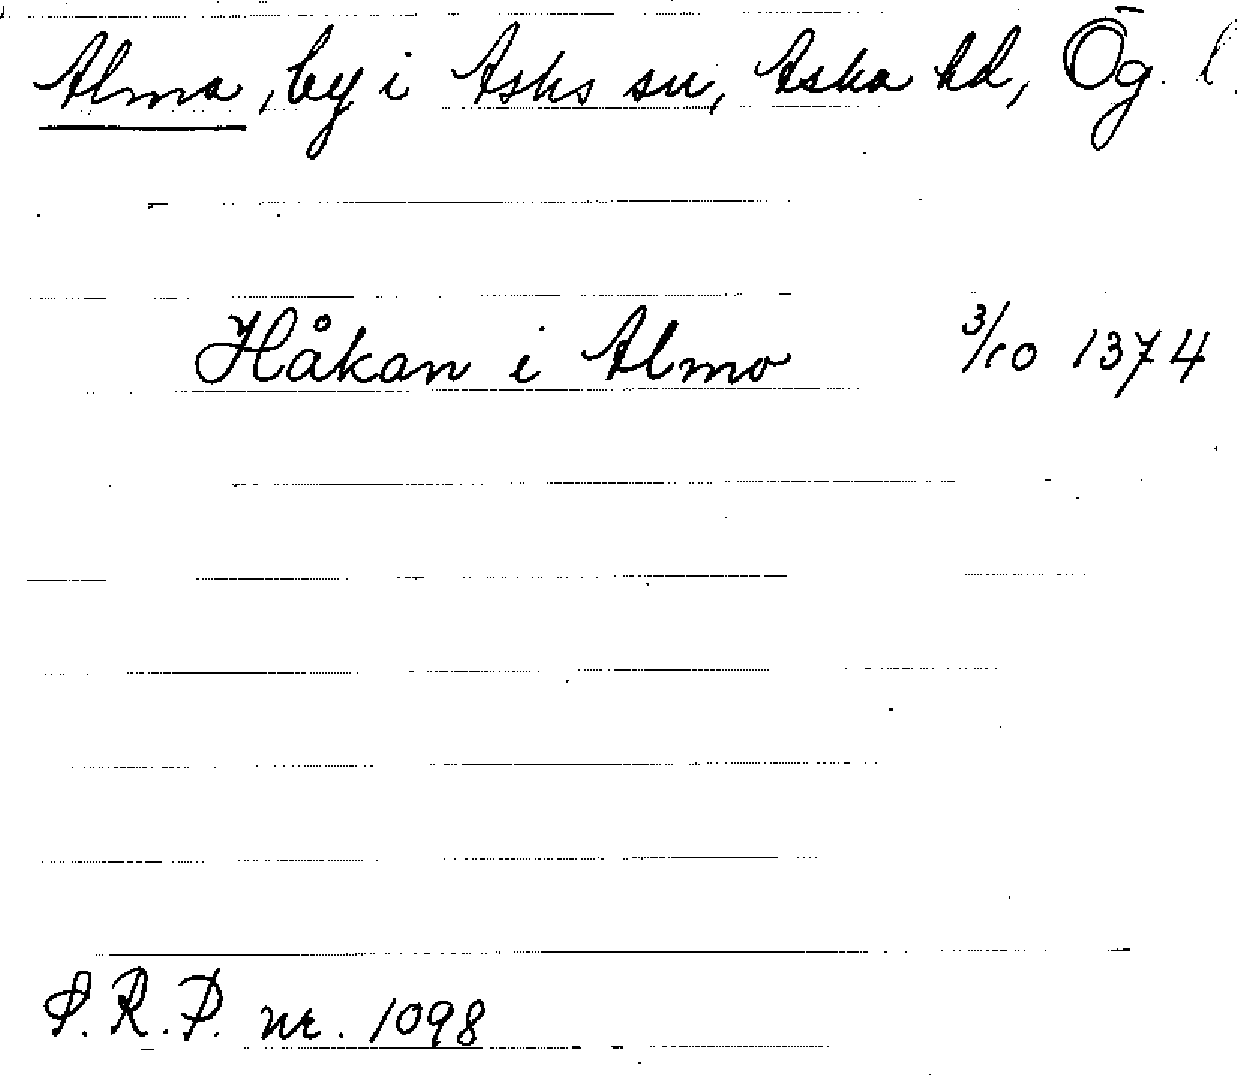 Alma, by i Asks sn, Aska hd, Ög. l.
Håkan i Almo 3/10 1374
P.R.P. nr. 1098